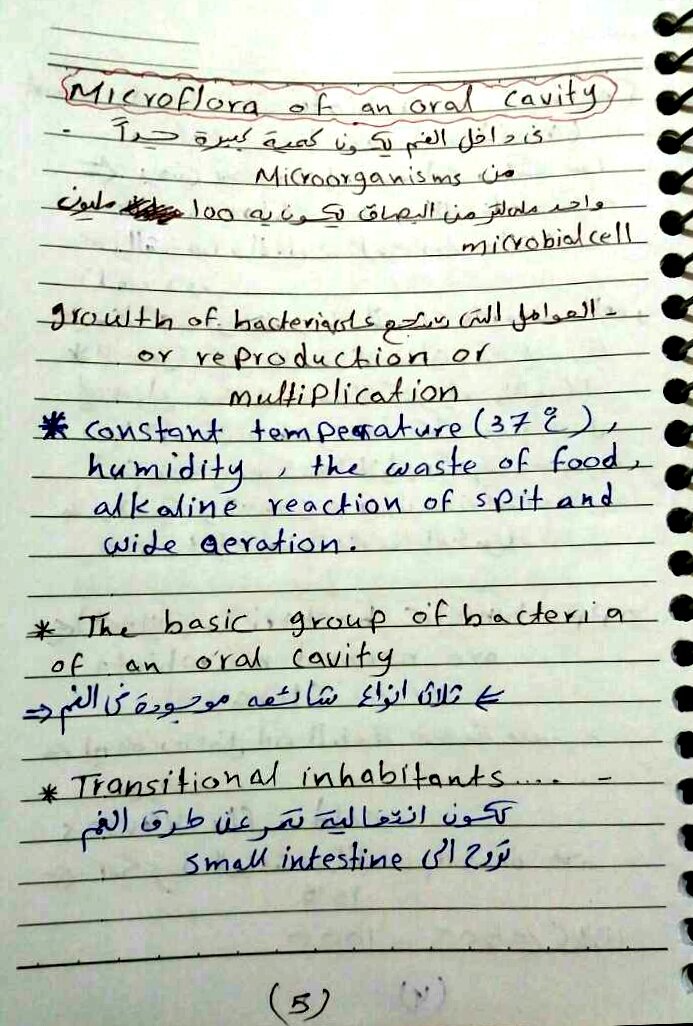 Microflora of an oral cavity
فى داخل الفم يكون كمية كبيرة جداً
من Microorganisms
واحد مللتر من البصاق يكون به 100 مليون
microbial cell
- العوامل التى تشجع على growth of bacteria
or reproduction or
multiplication
* constant temperature (37 ℃),
humidity, the waste of food,
alkaline reaction of spit and
wide aeration.
* The basic group of bacteria
of an oral cavity
⇐ ثلاث انواع شائعه موجودة فى الفم ⇒
* Transitional inhabitants.... -
تكون انتقالية تمر عن طرق الفم
تروح الى small intestine
(5)